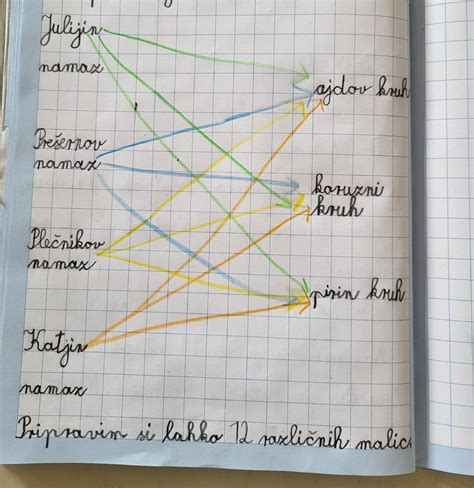 Julijin
namaz
ajdov kruh
Prešernov
namaz
koruzni
kruh
Plečnikov
namaz
pirin kruh
Katjin
namaz
Pripravim si lahko 12 različnih malic